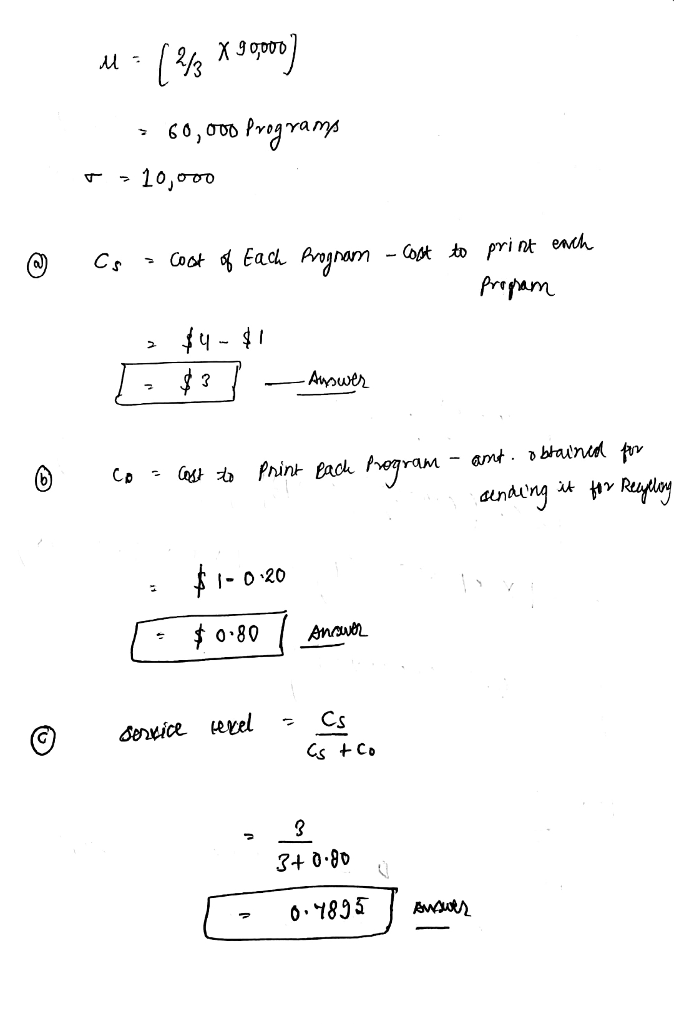 μ = [2/3 X 90,000]
= 60,000 Programs
σ = 10,000
(a) Cs = Cost of Each Program - Cost to print each
Program
= $4 - $1
= $3 — Answer
(b) Co = Cost to Print Each Program - amt. obtained for
sending it for Recycling
= $ 1 - 0.20
= $ 0.80 Answer
(c) Service level = Cs / Cs + Co
= 3 / 3 + 0.80
= 0.7895 Answer